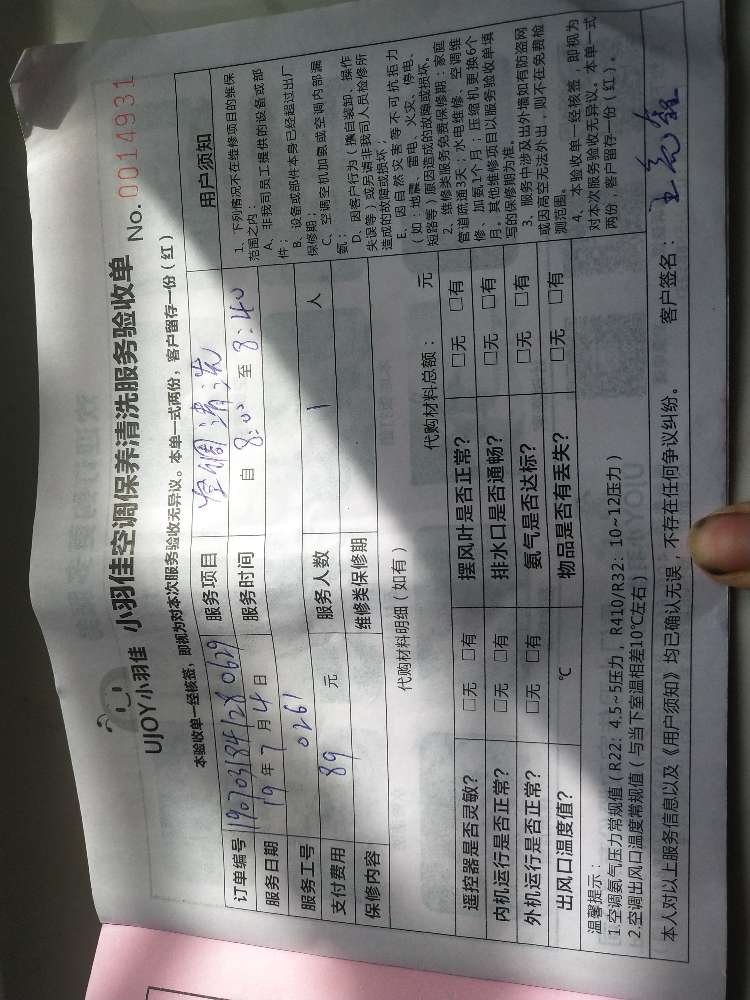 UJOY小羽佳 小羽佳空调保养清洗服务验收单 No. 0014931
本验收单一经核签，即视为对本次服务验收无异议。本单一式两份，客户留存一份（红）
订单编号 190703184128 0629 服务项目 空调清洗
服务日期 19年7月4日 服务时间 自 8:00 至 8:40
服务工号 0261
支付费用 89 元 服务人数 1 人
保修内容 维修类保修期
代购材料明细（如有） 代购材料总额： 元
遥控器是否灵敏？ □无 □有 摆风叶是否正常？ □无 □有
内机运行是否正常？ □无 □有 排水口是否通畅？ □无 □有
外机运行是否正常？ □无 □有 氨气是否达标？ □无 □有
出风口温度值？ ℃ 物品是否有丢失？ □无 □有
用户须知
1、下列情况不在维修项目的维保
范围之内：
A、非我司员工提供的设备或部
件；
B、设备或部件本身已经超过出厂
保修期；
C、空调空机加氨或空调内部漏
氨；
D、因客户行为（擅自装卸、操作
失误等）或另请非我司人员检修所
造成的故障或损坏；
E、因自然灾害等不可抗拒力
（如：地震、雷电、火灾、停电、
短路等）原因造成的故障或损坏。
2、维修类服务免费保修期：家庭
管道疏通3天；水电维修、空调维
修、加氨1个月；压缩机更换6个
月；其他维修项目以服务验收单填
写的保修期为准。
3、服务中涉及出外墙如有防盗网
或因高空无法外出，则不在免费检
测范围。
4、本验收单一经核签，即视为
对本次服务验收无异议。本单一式
两份，客户留存一份（红）。
温馨提示：
1.空调氨气压力常规值（R22：4.5~5压力，R410/R32：10~12压力）
2.空调出风口温度常规值（与当下室温相差10℃左右）
本人对以上服务信息以及《用户须知》均已确认无误，不存在任何争议纠纷。 客户签名：